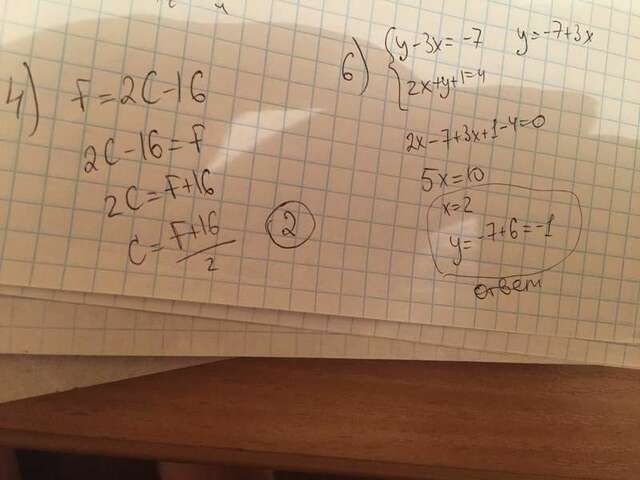 4) F = 2C - 16
2C - 16 = F
2C = F + 16
C = F+16/2
2
6) { y - 3x = -7 y = -7 + 3x
2x + y + 1 = 4
2x - 7 + 3x + 1 - 4 = 0
5x = 10
x = 2
y = -7 + 6 = -1
ответ